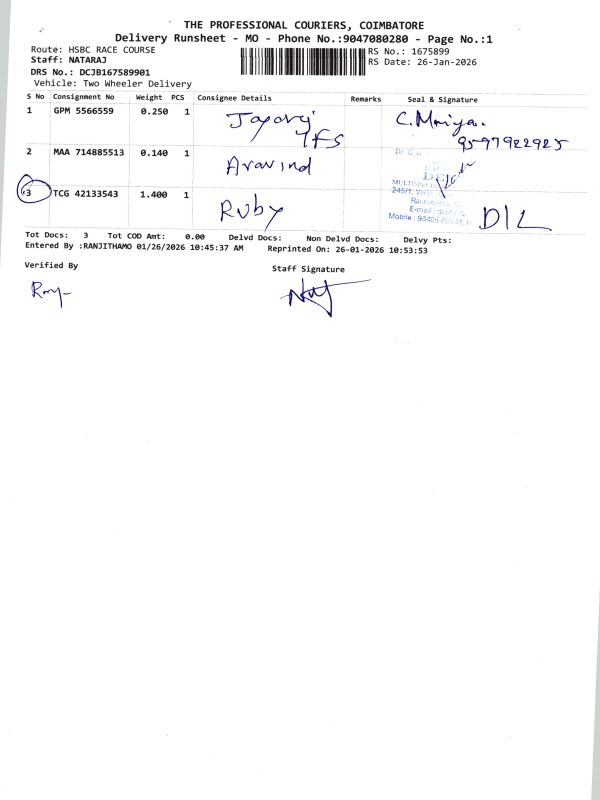 THE PROFESSIONAL COURIERS, COIMBATORE
Delivery Runsheet - MO - Phone No.:9047080280 - Page No.:1
Route: HSBC RACE COURSE
Staff: NATARAJ
DRS No.: DCJB167589901
Vehicle: Two Wheeler Delivery
RS No.: 1675899
RS Date: 26-Jan-2026
S No Consignment No Weight PCS Consignee Details Remarks Seal & Signature
1 GPM 5566559 0.250 1
9597922925
2 MAA 714885513 0.140 1 Aravind
3 TCG 42133543 1.400 1 Ruby
E-mail
Mobile
D/L
Tot Docs: 3 Tot COD Amt: 0.00 Delvd Docs: Non Delvd Docs: Delvy Pts:
Entered By :RANJITHAMO 01/26/2026 10:45:37 AM Reprinted On: 26-01-2026 10:53:53
Verified By
Staff Signature